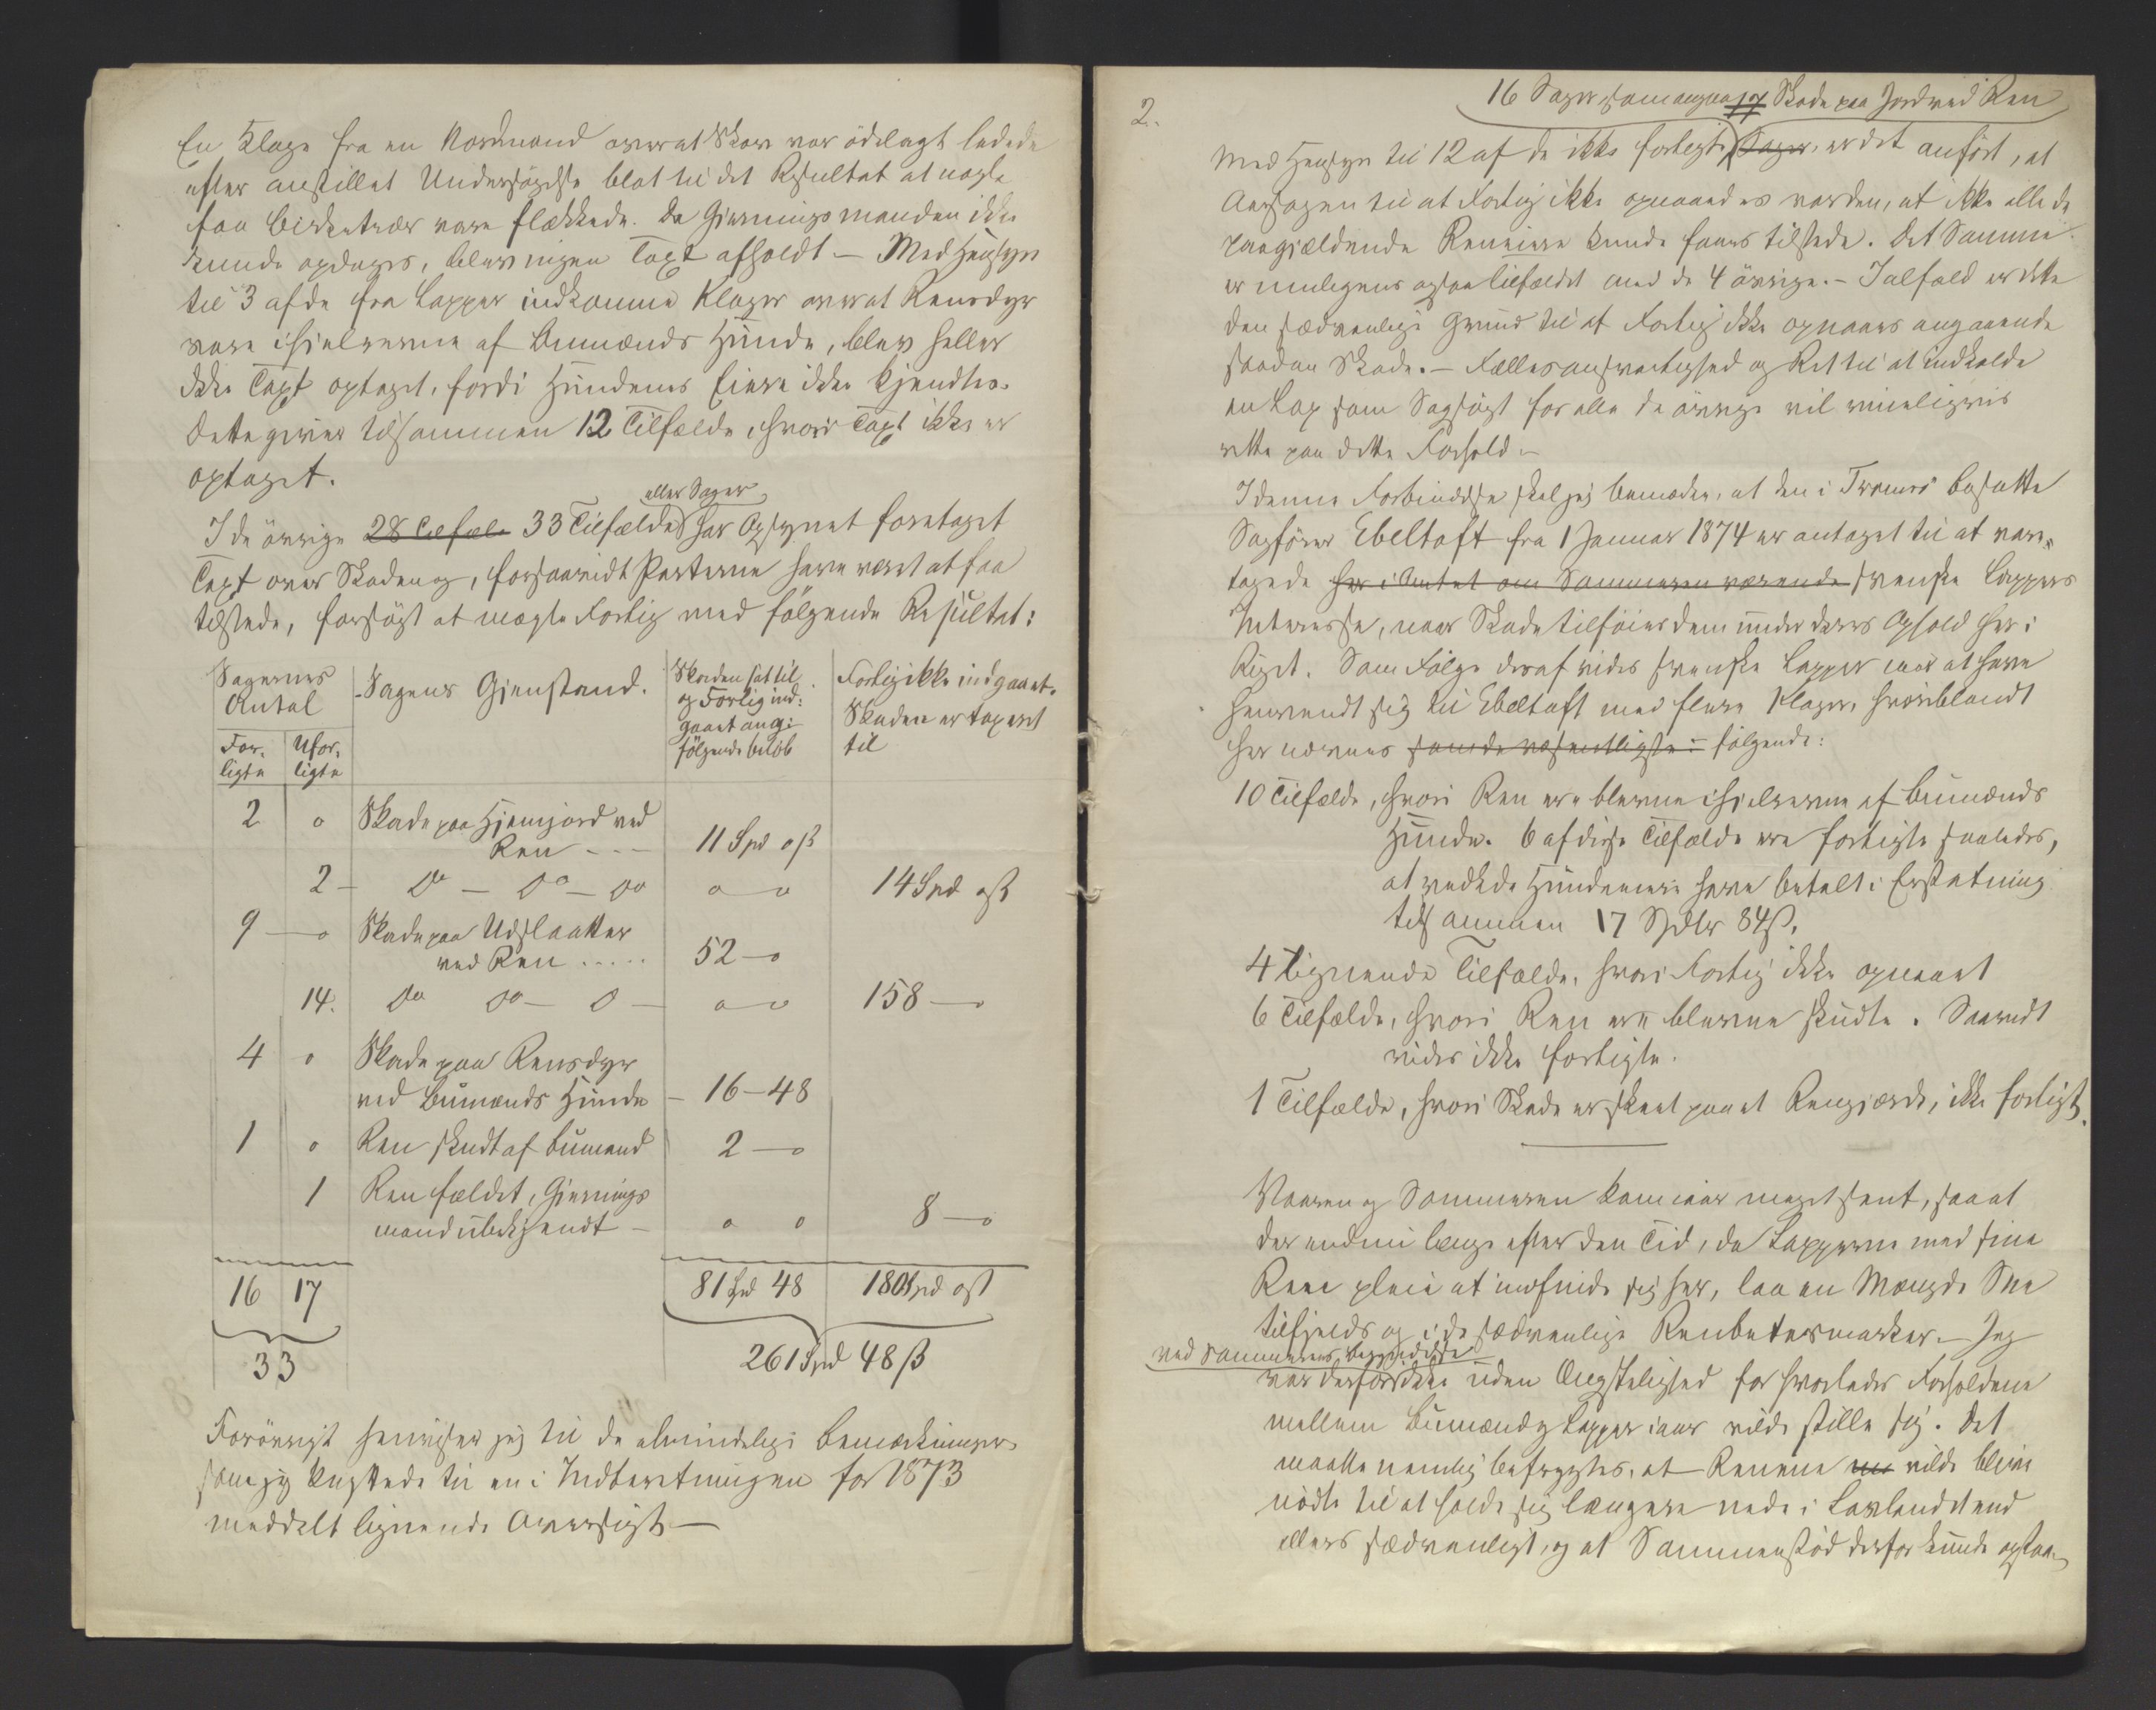 En Klage fra en Nordmand over at Skov var ödelagt ledede
efter anstillet Undersögelse blot til det Resultat at nogle
faa Birketræer vare flækkede. Da Gjerningsmanden ikke
kunde opdages, blev ingen Taxt afholdt – Med Hensyn
til 3 af de fra Lapper indkomne Klager over at Rensdyr
vare ihjelrevne af Bumænds Hunde, blev heller
ikke Taxt optaget, fordi Hundenes Eiere ikke kjendtes.
Dette giver tilsammen 12 Tilfælde, hvori Taxt ikke er
optaget.
eller Sager
I de övrige 28 Tilfæl 33 Tilfælde har Opsynet foretaget
Taxt over Skaden og, forsaavidt Parterne have været at faa
tilstede, forsögt at mægle Forlig med fölgende Resultat:
Sagernes Antal
Sagens Gjenstand.
Skaden sat til og Forlig ind: gaaet ang: fölgende belöb
Forlig ikke indgaaet. Skaden er taxeret til
For: ligte
Ufor: ligte
2 o Skade paa Hjemjord ved
Ren - - - 11 Spd o ß
2 – Do – Do – Do o – o 14 Spd o ß
9 – o Skade paa Udslaatter
ved Ren ..... 52 – o
14. Do Do – D – o – o 158 – o
4 o Skade paa Rensdyr
ved Bumænds Hunde – 16 – 48
1 o Ren skudt af Bumand 2 – o
1 Ren fældet, Gjernings
mand ubekjendt – o o 8 – o
16 17 81 Spd 48 180 Spd o ß
33 261 Spd 48 ß
Forövrigt henviser jeg til de almindelige Bemærkninger
som jeg knyttede til en i Indberetningen for 1873
meddelt lignende Oversigt –
2.
16 Sager, som angaa 17 Skade paa Jord ved Ren
Med Hensyn til 12 af de ikke forligte Sager, er det anfört, at
Aarsagen til at Forlig ikke opnaaedes var den, at ikke alle de
paagjældende Reneiere kunde faaes tilstede. Det Samme
er muligens ogsaa tilfældet med de 4 övrige. – Ialfald er dette
den sædvanlige Grund til at Forlig ikke opnaaes angaaende
saadan Skade. – Fællesansvarlighed og Ret til at indkalde
en Lap som Sagsögt for alle de övrige vil rimeligvis
rette paa dette Forhold –
I denne Forbindelse skal jeg bemærke, at den i Tromsö bosatte
Sagförer Ebeltoft fra 1 Januar 1874 er antaget til at vare,
tage de her i Amtet om Sommeren værende svenske Lappers
Interesse, naar Skade tilföies dem under deres Ophold her i
Riget. Som Fölge deraf vides svenske Lapper iaar at have
henvendt sig til Ebeltoft med flere Klager, hvoriblandt
her nævnes som de væsentligste: fölgende:
10 Tilfælde, hvori Ren ere blevne ihjelrevne af Bumænds
Hunde. 6 af disse Tilfælde ere forligte saaledes,
at vedkde Hundeeiere have betalt i Erstatning
tilsammen 17 Spdlr 84 ß.
4 lignende Tilfælde, hvori Forlig ikke opnaaet
6 Tilfælde, hvori Ren ere blevne skudte. Saavidt
vides ikke forligte.
1 Tilfælde, hvori Skade er skeet paa et Rengjærde, ikke forligt.
Vaaren og Sommeren kom iaar meget sent, saa at
der endnu længe efter den Tid, da Lapperne med sine
Rene pleie at indfinde sig her, laa en Mængde Sne
tilfjelds og i de sædvanlige Renbetesmarker. – Jeg
ved Sommerens Begyndelse
var derfor ikke uden Ængstelighed for hvorledes Forholdene
mellem Bumænd og Lapper iaar vilde stille sig. Det
maatte nemlig befrygtes, at Renene vilde blive
nödte til at holde sig længere nede i Lavlandet end
ellers sædvanligt, og at Sammenstöd derfor kunde opstaa